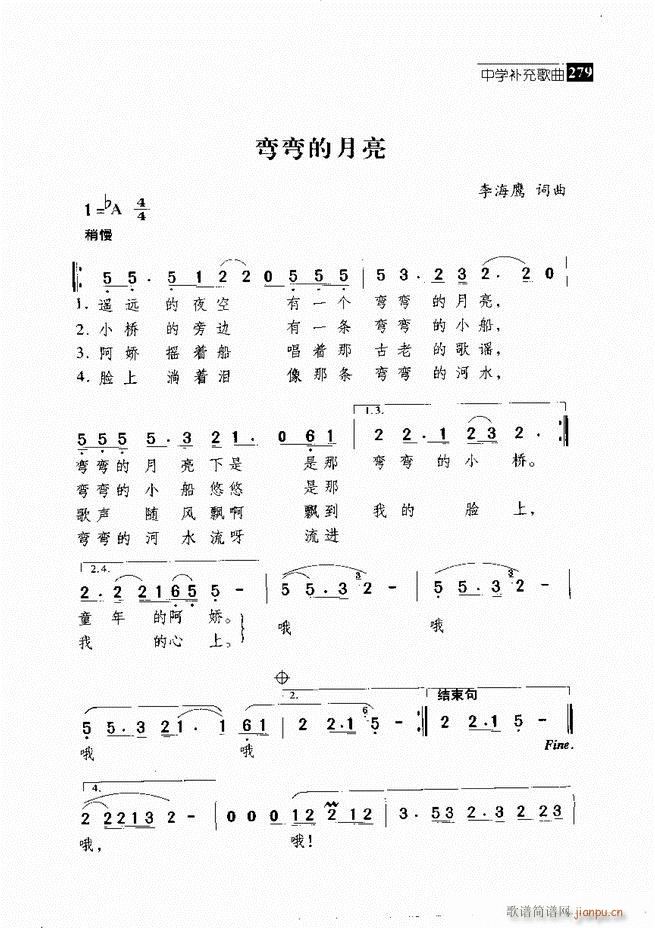 中学补充歌曲 279
弯弯的月亮
李海鹰 词曲
1=♭A 4/4
稍慢
5 5. 5 1 2 2 0 5 5 5 | 5 3. 2 3 2. 2 0
1. 遥远的夜空 有一个 弯弯的月亮,
2. 小桥的旁边 有一条 弯弯的小船,
3. 阿娇摇着船 唱着那 古老的歌谣,
4. 脸上淌着泪 像那条 弯弯的河水,
1.3.
5 5 5 5. 3 2 1. 0 6 1 | 2 2. 1 2 3 2.
弯弯的月亮下是 是那 弯弯的小桥。
弯弯的小船悠悠 是那
歌声随风飘啊 飘到 我的脸上,
弯弯的河水流呀 流进
2.4.
2. 2 2 1 6 5 5 - | 5 5. 3 2 - | 5 5. 3 2 -
童年的阿娇。 哦 哦
我的心上。
2. 结束句
5 5. 3 2 1. 1 6 1 | 2 2. 1 5 - | 2 2. 1 5 -
哦 哦 Fine.
4.
2 2 2 1 3 2 - | 0 0 0 1 2 2 1 2 | 3. 5 3 2. 3 2 2 3
哦, 哦!
歌谱简谱网
jianpu.cn